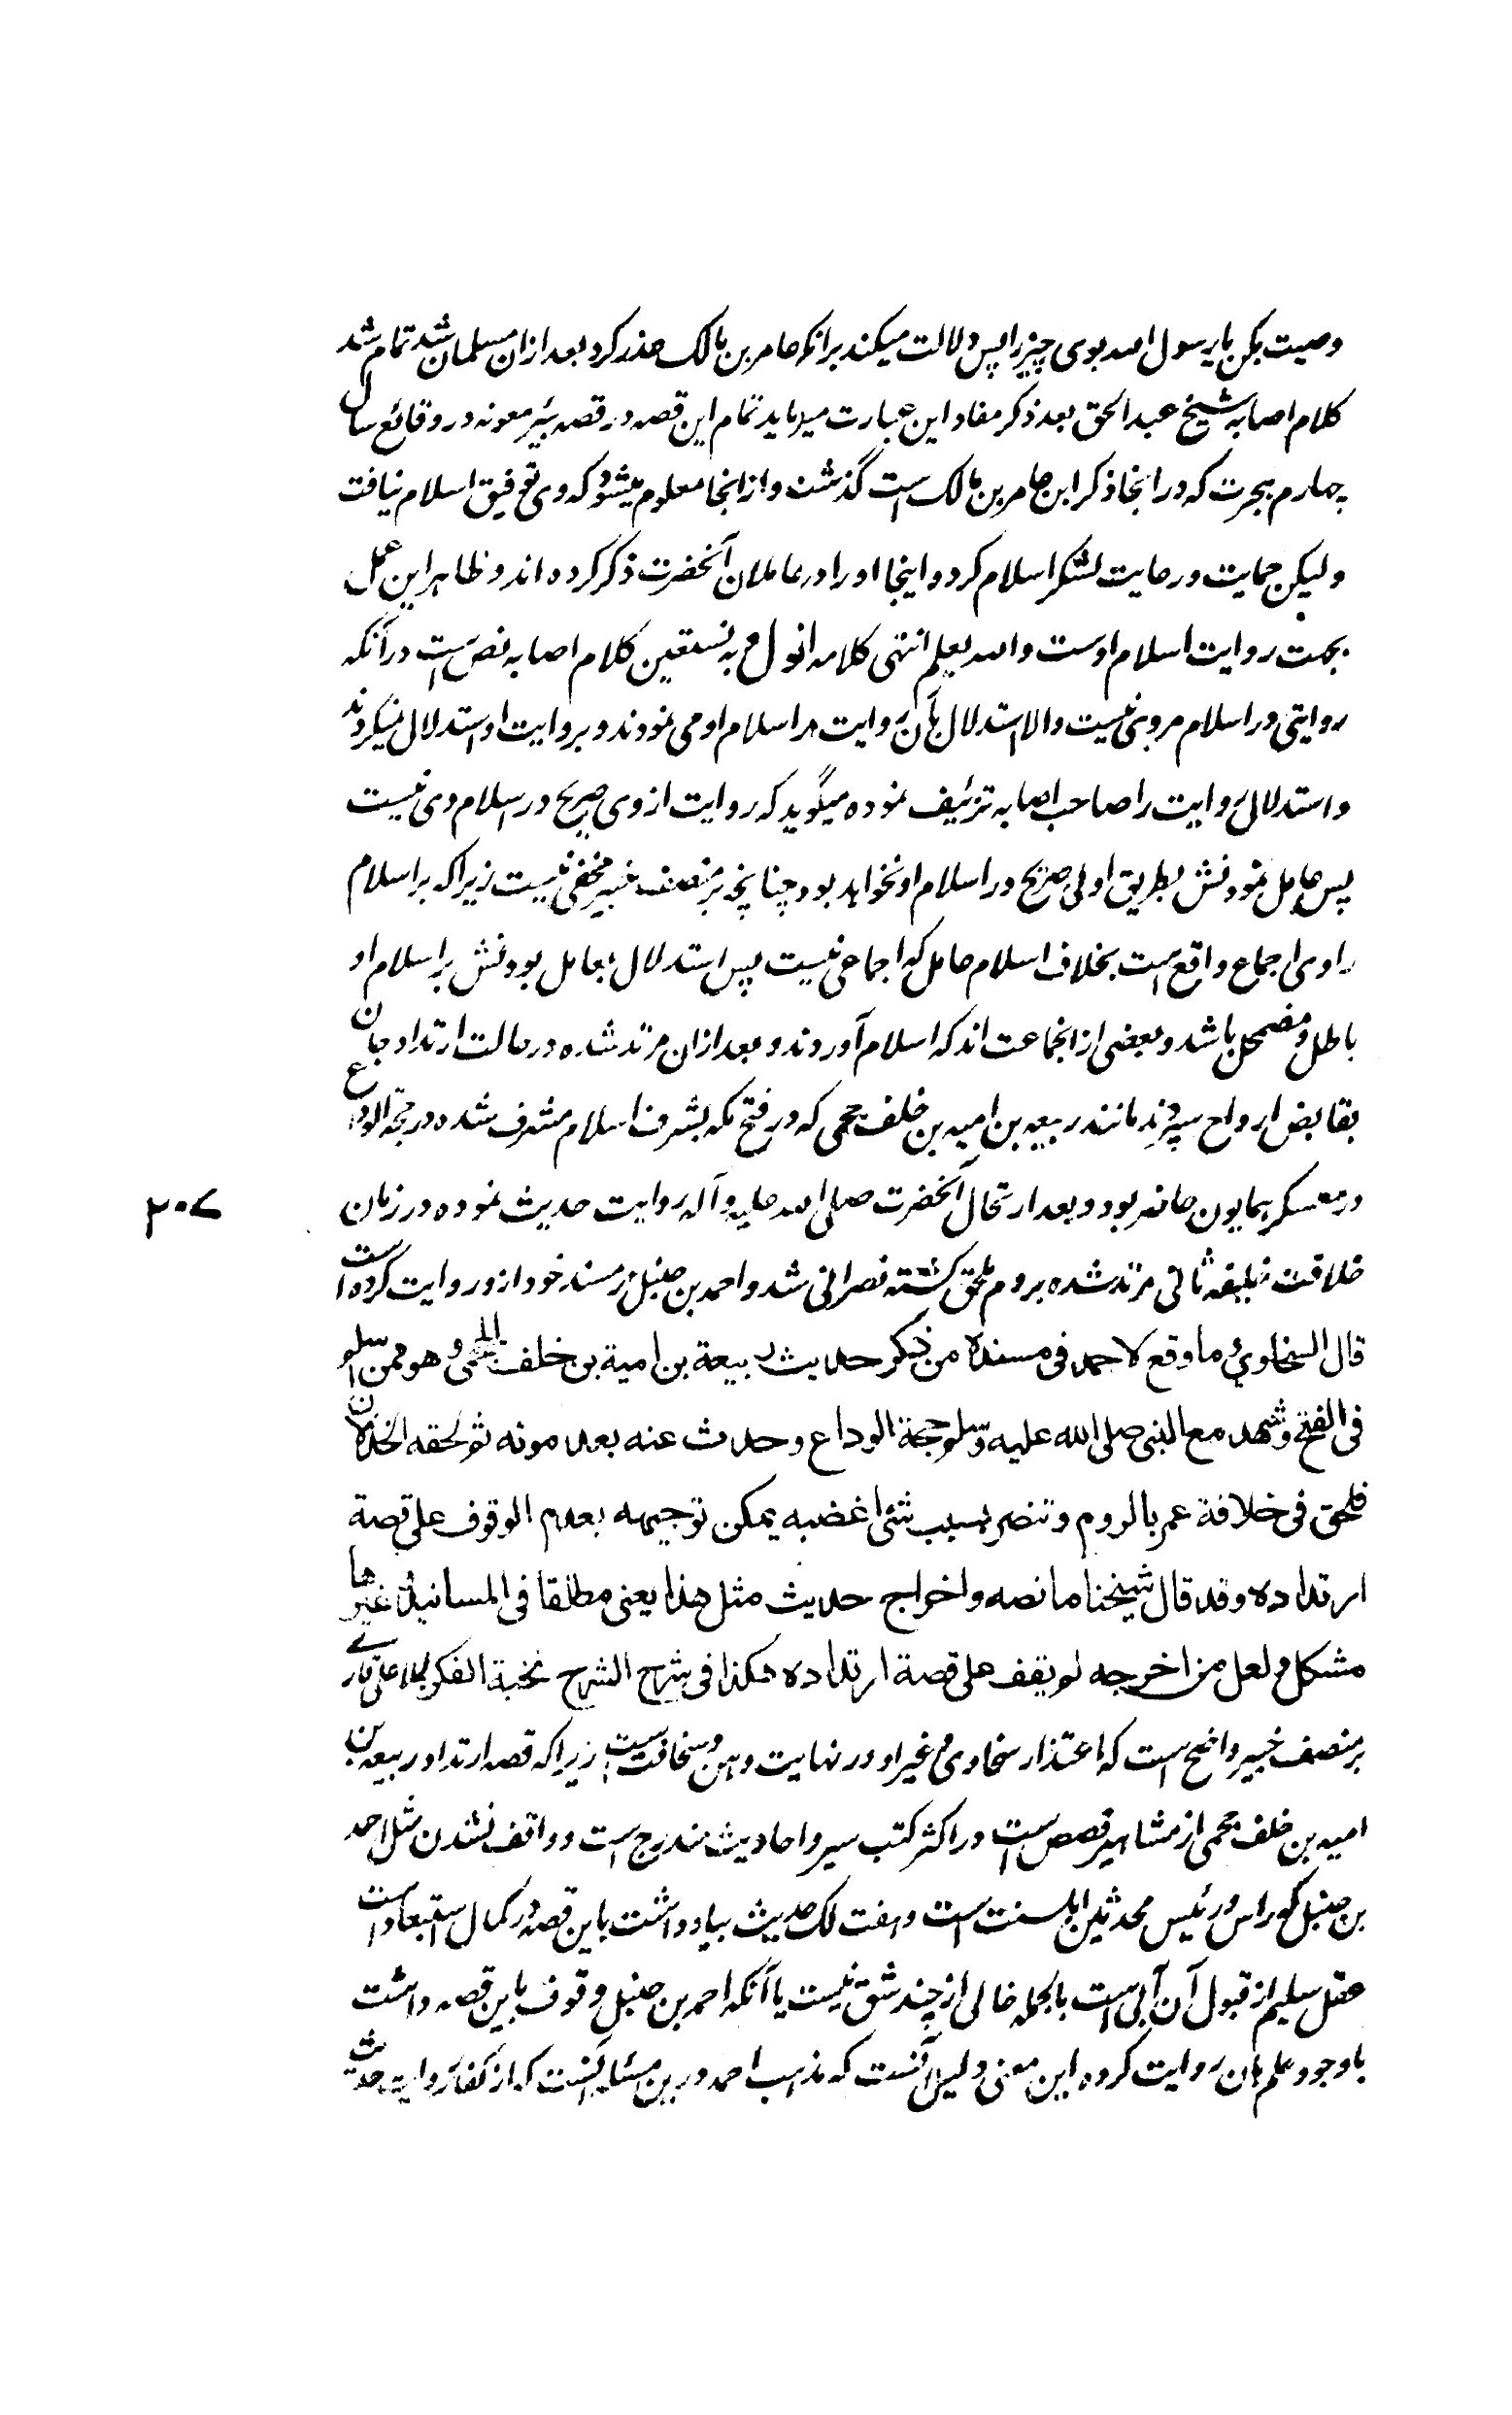 وصیت بکن یا رسول الله بوی چیزیرا پس دلالت میکند برانکه عامر بن مالک عذر کرد بعد ازان مسلمان شد تمام شد
کلام اصابه شیخ عبدالحق بعد ذکر مفاد این عبارت میفرماید تمام این قصه در قصه بئر معونه در وقائع سال
چهارم هجرت که در انجا ذکر ابن عامر بن مالک است گذشت و از انجا معلوم میشود که وی توفیق اسلام نیافت
ولیکن حمایت و رعایت لشکر اسلام کرد و اینجا او را در عاملان آنحضرت ذکر کرده اند و ظاهر این عمل
بجهت روایت اسلام اوست والله یعلم انتهی کلامه اقول و به نستعین کلام اصابه نص است در آنکه
روایتی در اسلام مروی نیست والا استدلال بآن روایت در اسلام او می نمودند و بروایت او استدلال نمیکردند
و استدلال روایت را صاحب اصابه تزئیف نموده میگوید که روایت از وی صریح در اسلام وی نیست
پس عامل نمودنش بطریق اولی صریح در اسلام او نخواهد بود چنانچه بر منصف خبیر مخفی نیست زیرا که بر اسلام
راوی اجماع واقع است بخلاف اسلام عامل که اجماعی نیست پس استدلال بعامل بودنش بر اسلام او
باطل و مضمحل باشد و بعضی از انجماعت اند که اسلام آوردند و بعد ازان مرتد شده در حالت ارتداد جان
بقابض ارواح سپردند مانند ربیعه بن امیه بن خلف جمحی که در فتح مکه بشرف اسلام مشرف شده در حجة الوداع
در معسکر همایون حاضر بود و بعد ارتحال آنحضرت صلی الله علیه وآله روایت حدیث نموده در زمان
۲۰۷
خلافت خلیفه ثانی مرتد شده بروم ملحق گشته نصرانی شد و احمد بن حنبل در مسند خود ازو روایت کرده است
قال السخاوي وما وقع لاحمد فی مسنده من ذکر حدیث ربیعة بن امیة بن خلف الجمحی وهو ممن اسلم
فی الفتح وشهد مع النبی صلی الله علیه وسلم حجة الوداع وحدث عنه بعد موته ثم لحقه الخذلان
فلحق فی خلافة عمر بالروم وتنصر بسبب شئ اغضبه یمکن توجیهه بعدم الوقوف علی قصة
ارتداده وقد قال شیخنا ما نصه واخراج حدیث مثل هذا یعنی مطلقا فی المسانید وغیرها
مشکل ولعل من اخرجه لم یقف علی قصة ارتداده هکذا فی شرح الشرح نخبة الفکر لملا علی قاری
بر منصف خبیر واضح است که اعتذار سخاوی و غیر او در نهایت وهن و سخافت است زیرا که قصه ارتداد ربیعه بن
امیه بن خلف جمحی از مشاهیر قصص است در اکثر کتب سیر و احادیث مندرج است و واقف نشدن مثل احمد
بن حنبل که راس و رئیس محدثین اهلسنت است و هفت لک حدیث بیاد داشت باین قصه در کمال استبعاد است
عقل سلیم از قبول آن آبی است بالجمله خالی از چند شق نیست یا آنکه احمد بن حنبل وقوف باین قصه داشت
باوجود علم بآن روایت کرده این معنی دلیل آنست که مذهب احمد درین مسئله اینست که از کفار روایت حدیث